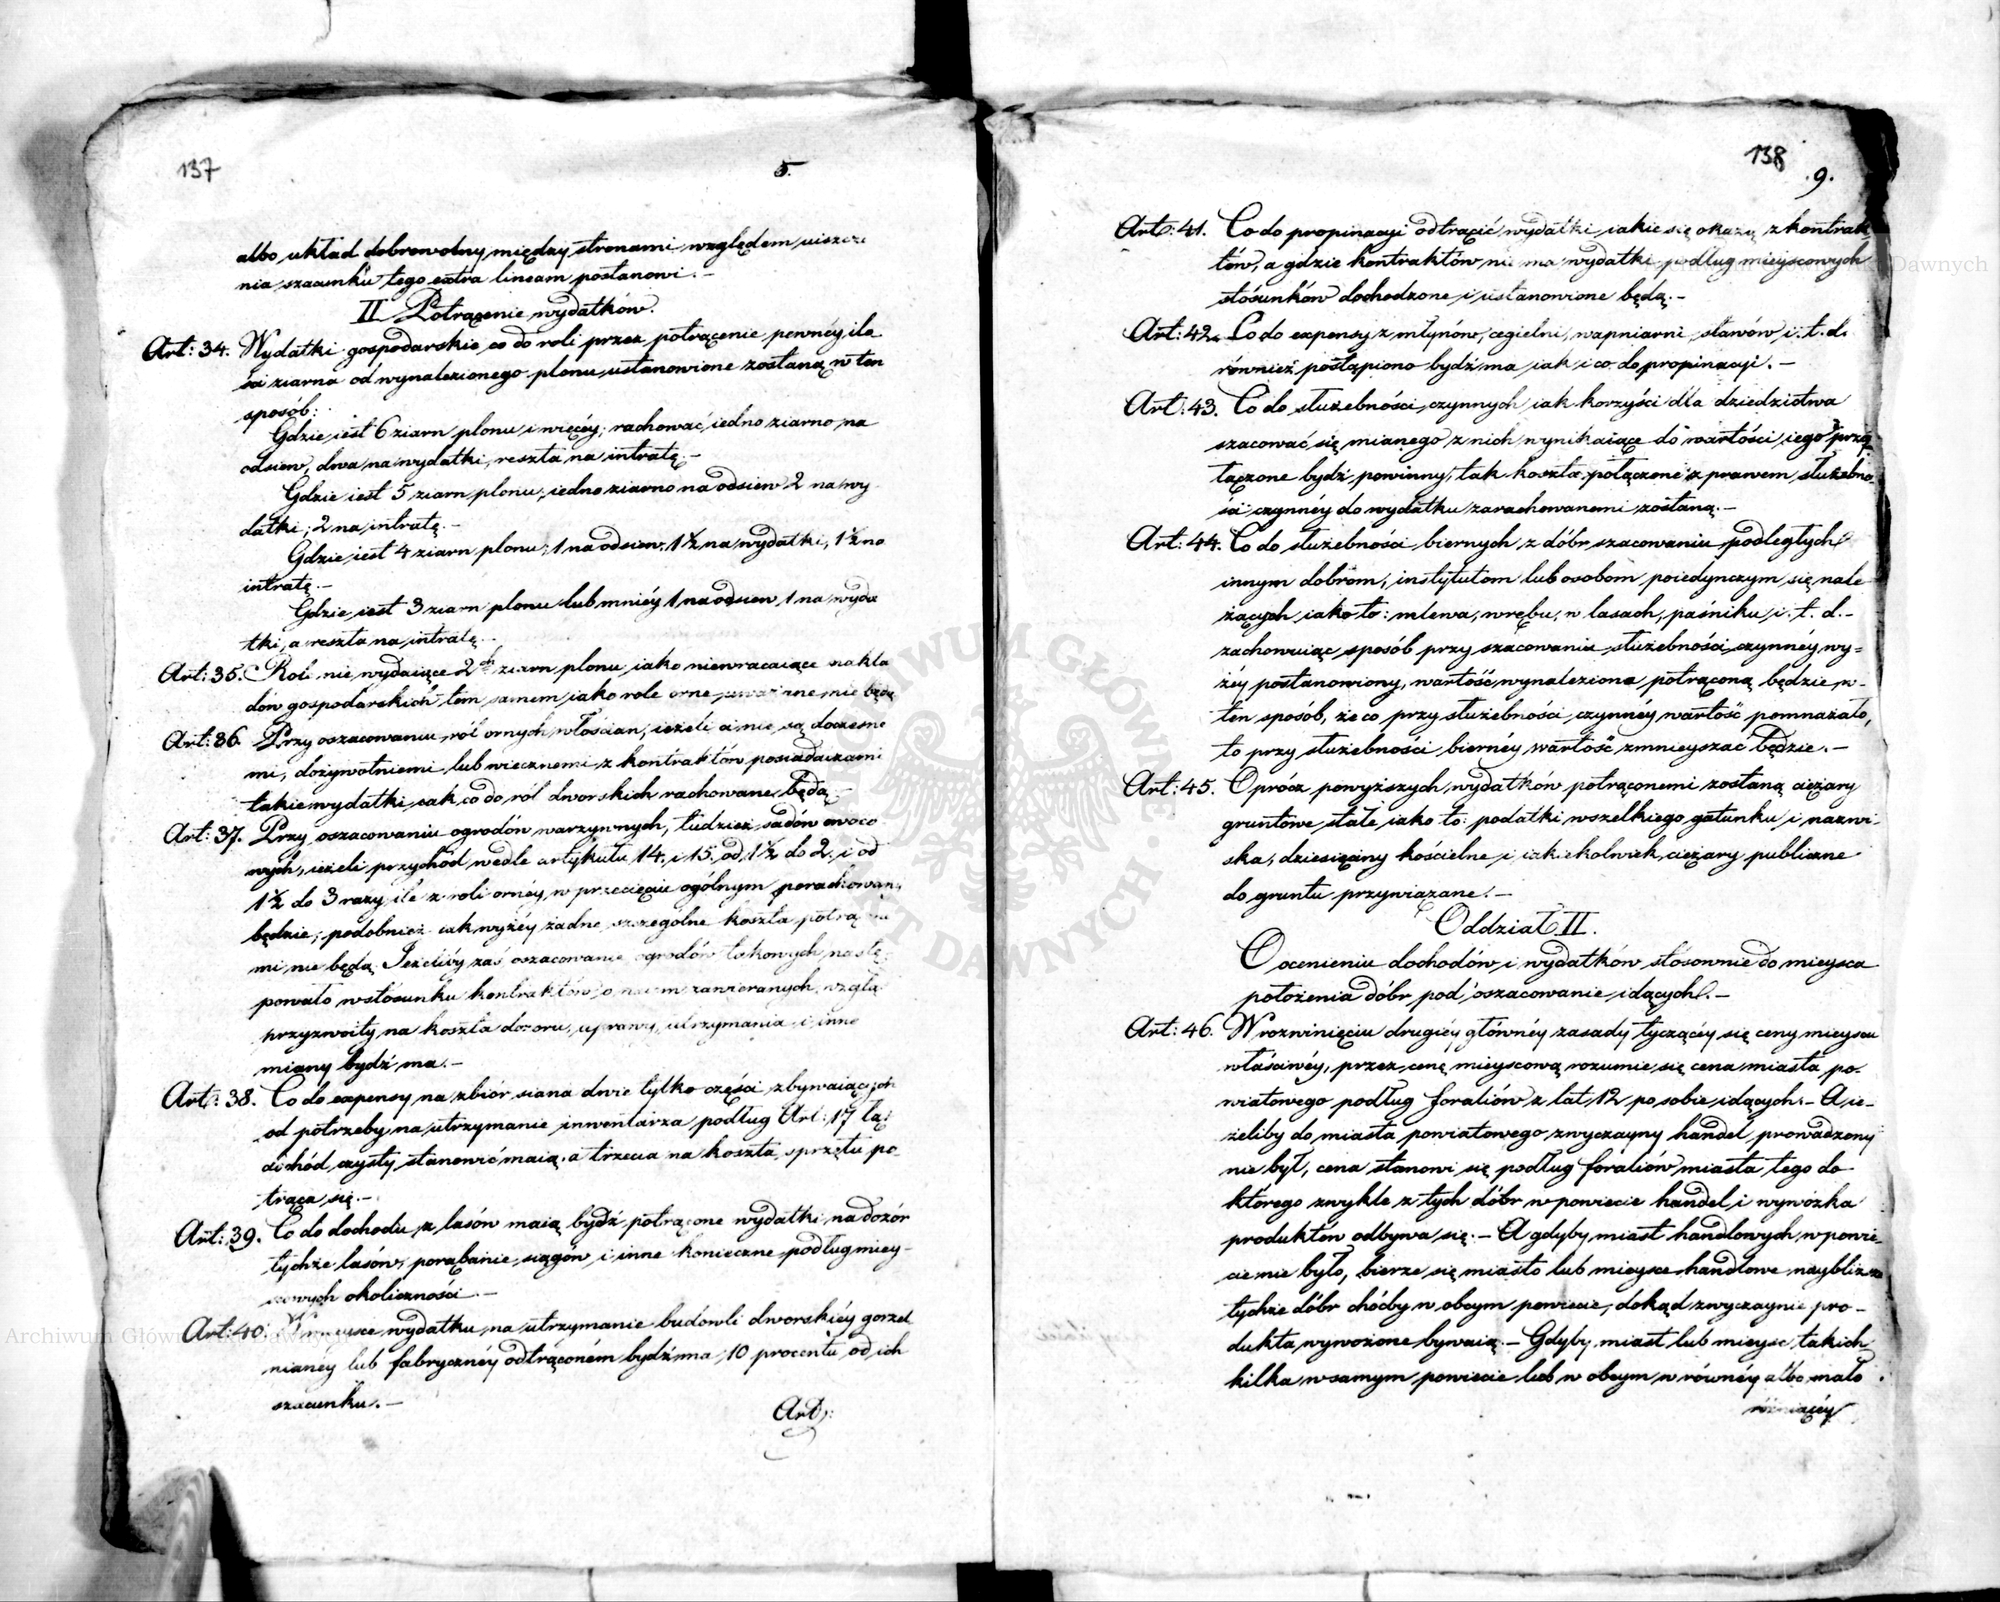 137
5.
albo układ dobrowolny między stronami względem uiszcze
nia szacunku tego extra lineam postanowi. –
II Potrącenie wydatków.
Art: 34. Wydatki gospodarskie co do roli przez potrącenie pewnéy ilo
ści ziarna od wynalezionego plonu ustanowione zostaną w ten
sposób:
Gdzie iest 6 ziarn plonu i więcéy; rachować iedno ziarno na
odsiew, dwa na wydatki, reszta na intratę. –
Gdzie iest 5 ziarn plonu; iedno ziarno na odsiew 2 na wy
datki; 2 na intratę. –
Gdzie iest 4 ziarn plonu; 1 na odsiew, 1½ na wydatki, 1½ na
intratę. –
Gdzie iest 3 ziarn plonu lub mniéy 1 na odsiew 1 na wyda
tki, a reszta na intratę. –
Art: 35. Role nie wydaiące 2ch ziarn plonu iako niewracaiące nakła
dów gospodarskich tem samem iako role orne uważane nie będą
Art: 36. Przy oszacowaniu ról ornych włościan, ieżeli ci nie są doczesne
mi, dożywotniemi lub wiecznemi z kontraktów posiadaczami
takie wydatki iak co do ról dworskich rachowane będą. –
Art: 37. Przy oszacowaniu ogrodów warzywnych, tudzież sadów owoco
wych, ieżeli przychód wedle artykułu 14. i 15. od 1½ do 2. i od
1½ do 3 razy ile z roli ornéy w przecięciu ogólnym porachowany
będzie; podobnież iak wyżéy żadne szczególne koszta potrącone
mi nie będą. Jeżeliby zaś oszacowanie ogrodów takowych nastę
powało w stosunku kontraktów o naiem zawieranych, wzgląd
przyzwoity na koszta dozoru, uprawy, utrzymania i inne
miany bydź ma. –
Art: 38. Co do expensy na zbiór siana dwie tylko części zbywaiących
od potrzeby na utrzymanie inwentarza podług Art: 17 łąk
dochód czysty stanowić maią, a trzecia na koszta sprzętu po-
trąca się. –
Art: 39. Co do dochodu z lasów maią bydź potrącone wydatki na dozór
tychże lasów, porąbanie sągów i inne konieczne podług miey-
scowych okoliczności. –
Art: 40. W mieysce wydatku na utrzymanie budowli dworskiéy gorzel
nianéy lub fabrycznéy odtrąconém bydź ma 10 procentu od ich
szacunku. –
Art:
138
.9.
Art: 41. Co do propinacyi odtrącić wydatki iakie się okażą z kontrak
tów, a gdzie kontraktów nie ma wydatki podług mieyscowych
stósunków dochodzone i ustanowione będą. –
Art: 42. Co do expensy z młynów, cegielni, wapniarni, stawów i. t. d.
również postąpiono bydź ma iak i co do propinacyi. –
Art: 43. Co do służebności czynnych iak korzyści dla dziedzictwa
szacować się mianego z nich wynikaiące do wartości iego przy
łączone bydź powinny, tak koszta połączone z prawem służebno
ści czynnéy do wydatku zarachowanemi zostaną. –
Art: 44. Co do służebności biernych z dóbr szacowaniu podległych
innym dobrom, instytutom lub osobom poiedynczym się nale
żących iako to: mlewa, wrębu, w lasach, paśniku i. t. d. –
zachowuiąc sposób przy szacowaniu służebności czynnéy wy=
żéy postanowiony, wartość wynaleziona potrąconą będzie w
ten sposób, że co przy służebności czynnéy wartość pomnażało,
to przy służebności biernéy wartość zmnieyszać będzie. –
Art: 45. Oprócz powyższych wydatków potrąconemi zostaną ciężary
gruntowe stałe iako to: podatki wszelkiego gatunku i nazwi-
ska, dziesięciny kościelne i iakiekolwiek ciężary publiczne
do gruntu przywiązane. –
Oddział II.
O ocenieniu dochodów i wydatków stósownie do mieysca
położenia dóbr pod oszacowanie idących. –
Art: 46. W rozwinięciu drugiéy głównéy zasady tyczącéy się ceny mieyscu
właściwéy, przez cenę mieyscową rozumie się cena miasta po-
wiatowego podług foraliów z lat 12 po sobie idących. – A ie-
żeliby do miasta powiatowego zwyczayny handel prowadzony
nie był, cena stanowi się podług foraliów miasta tego do
którego zwykle z tych dóbr w powiecie handel i wywózka
produktów odbywa się. – A gdyby miast handlowych w powie-
cie nie było, bierze się miasto lub mieysce handlowe naybliższe
tychże dóbr choćby w obcym powiecie, dokąd zwyczaynie pro-
dukta wywożone bywaią. – Gdyby miast lub mieysc takich
kilka w samym powiecie lub w obcym w równéy albo mało
różniącéy
Archiwum Główne Akt Dawnych
ARCHIWUM GŁÓWNE AKT DAWNYCH